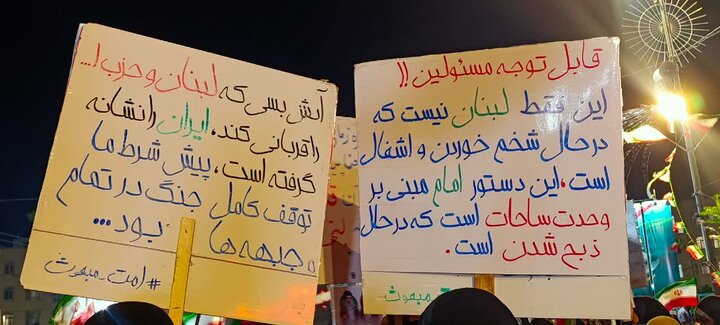 آتش بسی که لبنان و حزب ا...
را قربانی کند، ایران را نشانه
گرفته است، پیش شرط ما
توقف کامل جنگ در تمام
جبهه ها بود...
#امت_مبعوث
قابل توجه مسئولین!!
این فقط لبنان نیست که
درحال شخم خوردن و اشغال
است، این دستور امام مبنی بر
وحدت ساحات است که درحال
ذبح شدن است.
مبعوث